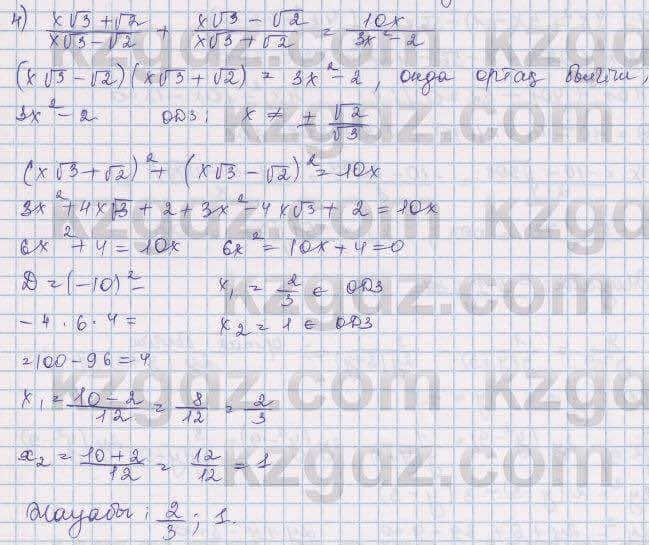 4) (x√3+√2)/(x√3-√2) + (x√3-√2)/(x√3+√2) = 10x/(3x²-2)
(x√3-√2)(x√3+√2) = 3x²-2, онда ортақ бөлгіш,
3x²-2 ОДЗ: x ≠ ± √2/√3
(x√3+√2)²+(x√3-√2)²=10x
3x²+4x√3+2+3x²-4x√3+2=10x
6x²+4=10x 6x²=10x+4=0
D=(-10)²- x₁=2/3 ∈ ОДЗ
-4·6·4= x₂=1 ∈ ОДЗ
=100-96=4
x₁=(10-2)/12=8/12=2/3
x₂=(10+2)/12=12/12=1
Жауабы: 2/3; 1.
kzgdz.com